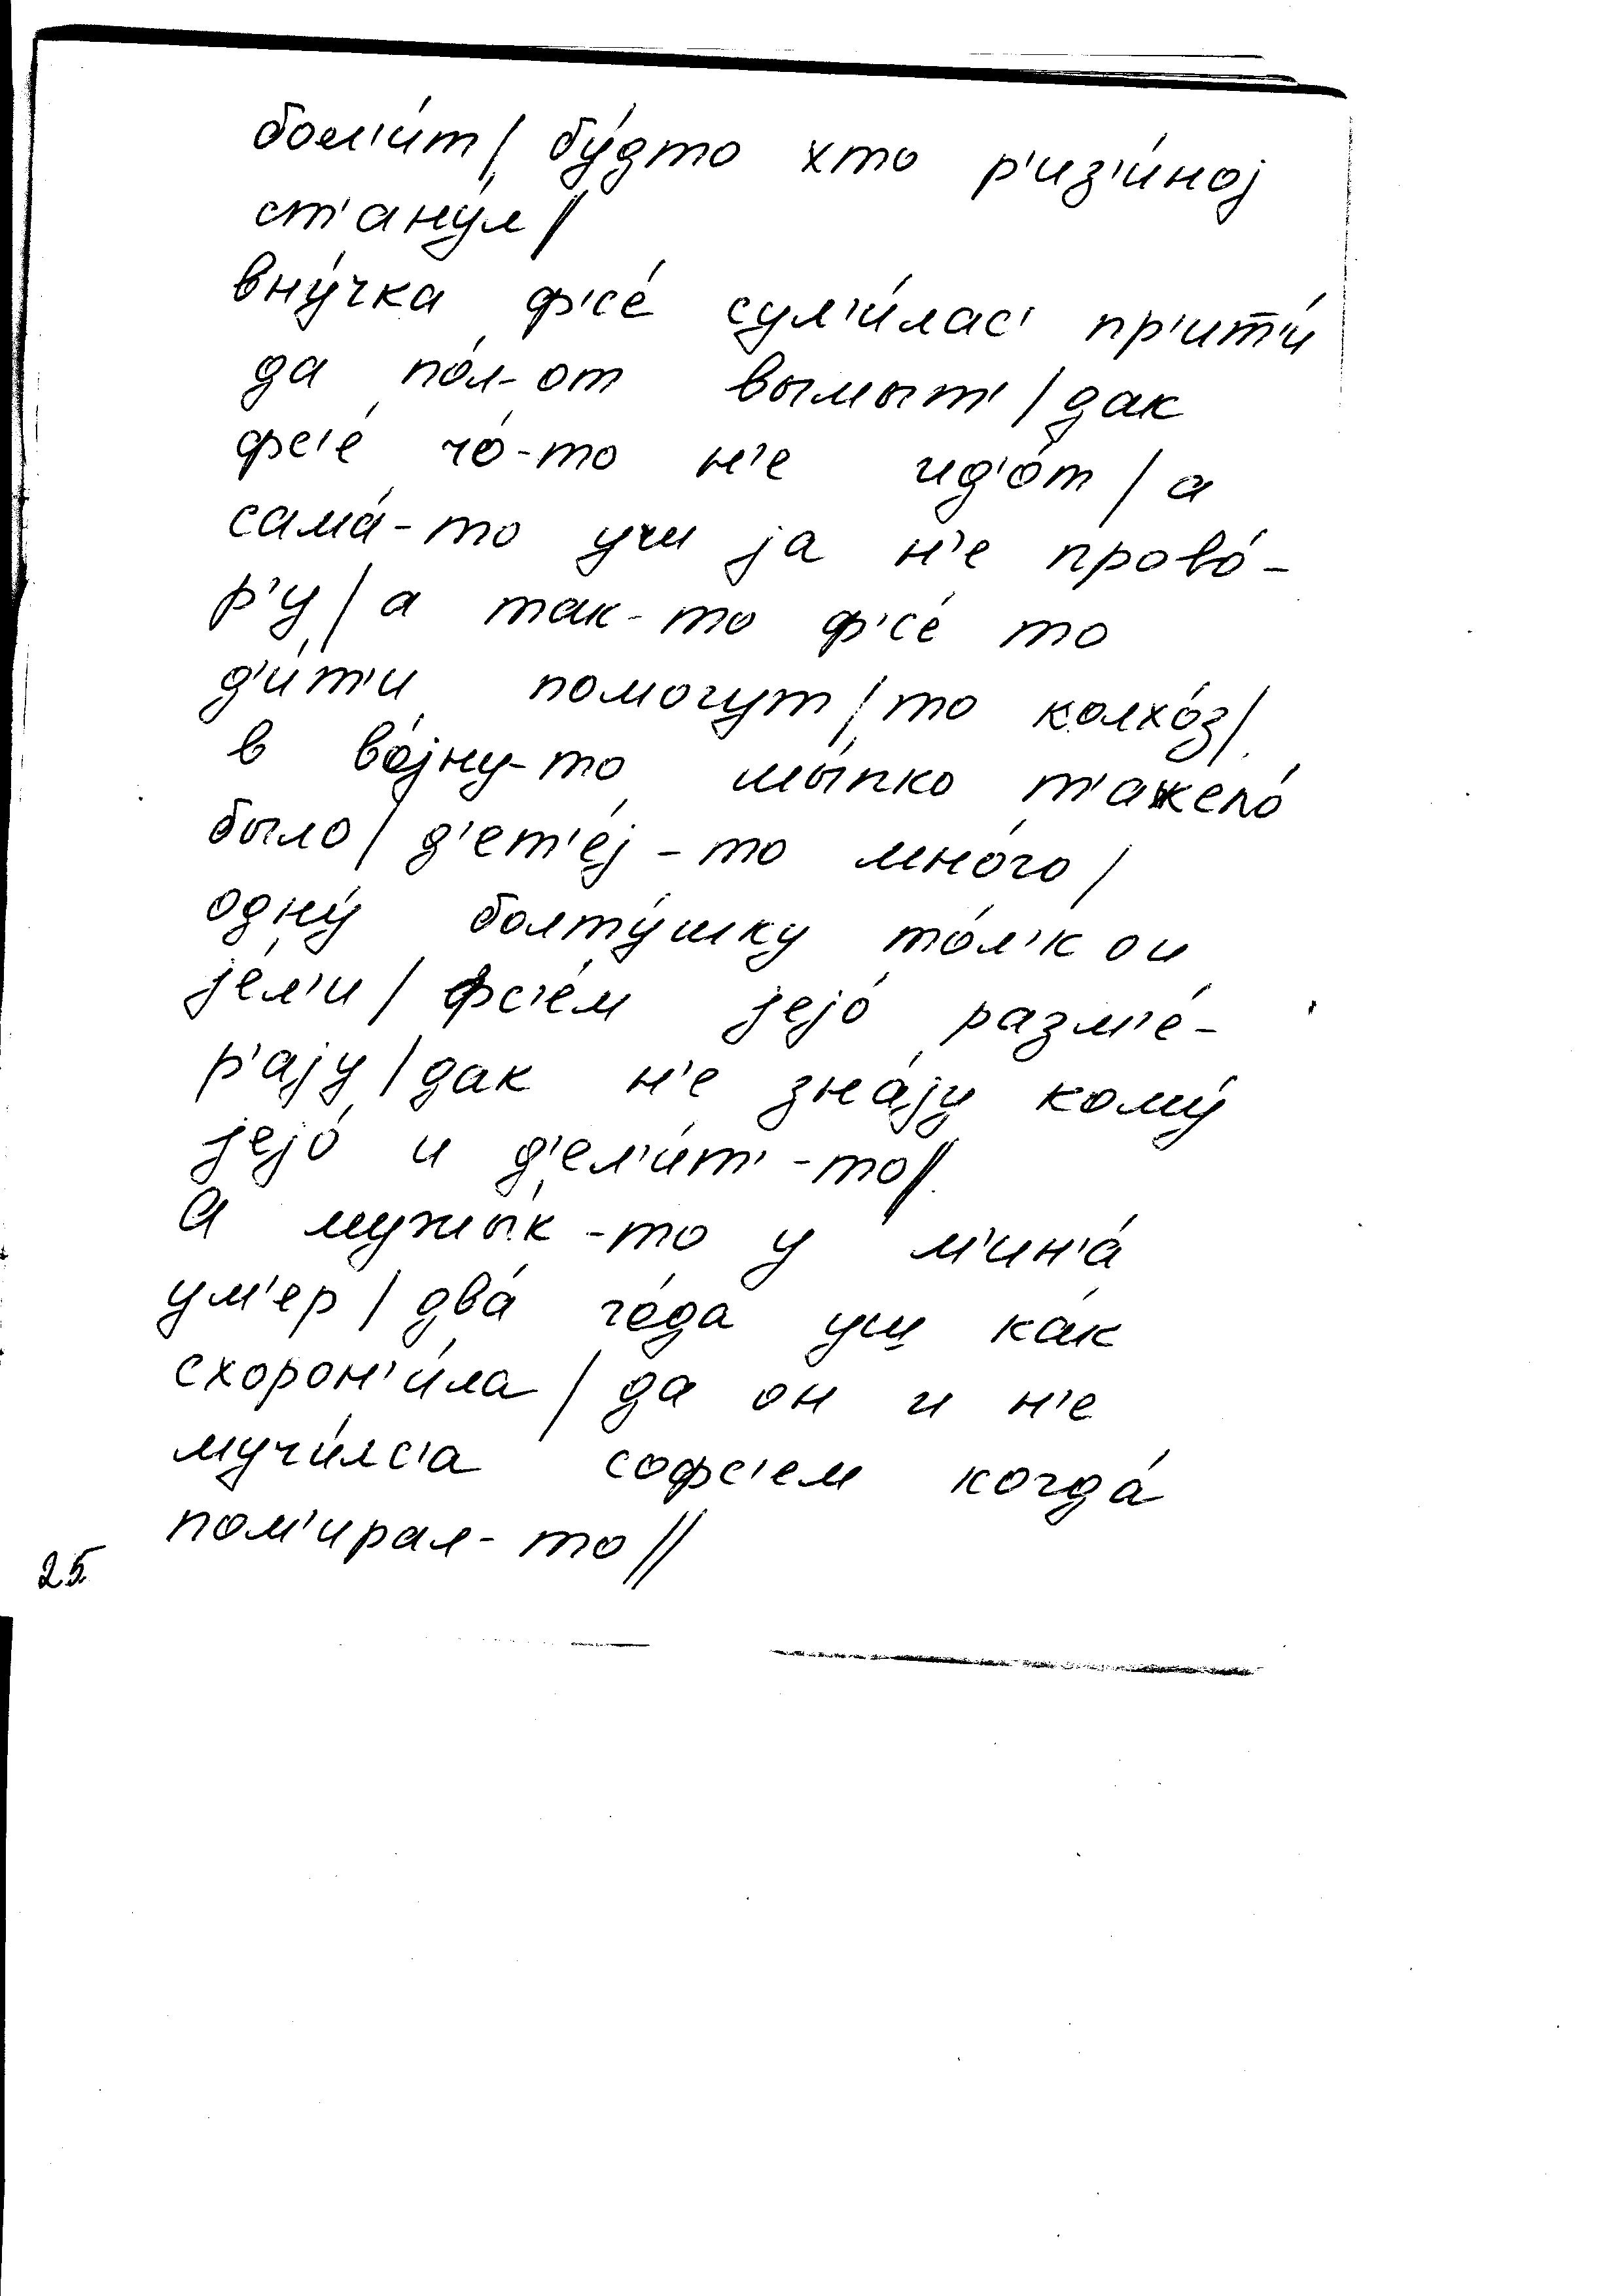 бол'и́т / бу́дто хто р'из'и́ној
ст'ану́л //
вну́чка ф'с'е́ сул'и́лас' пр'ит'и́
да по́л-от вымыт' / дак
фс'е́ чо́-то н'е ид'о́т / а
сама́-то учи ја н'е прово́-
р'у / а так-то ф'с'е́ то
д'и́т'и помогут / то колхо́з /
в во́јну-то мы́пко т'ажело́
было / д'ет'е́ј-то мно́го /
одну́ болту́шку то́л'к ои
је́л'и / фс'е́м јејо́ разм'е́-
р'ају / дак н'е зна́ју кому́
јејо́ и д'ел'и́т'-то //
А мужы́к-то у м'ин'а́
ум'ер / два́ го́да уш ка́к
схорон'и́ла / да он и н'е
мучи́лс'а софс'ем когда́
пом'ирал-то //
25